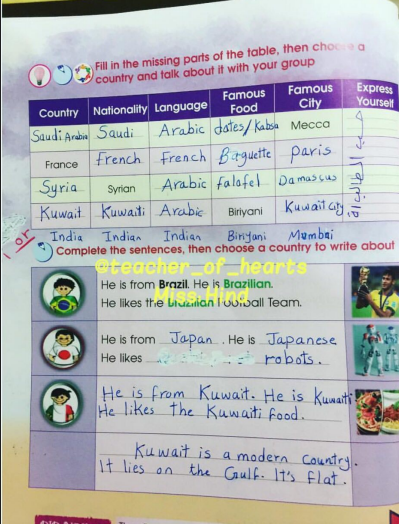 Fill in the missing parts of the table, then choose a
country and talk about it with your group
Country Nationality Language Famous Food Famous City Express Yourself
Saudi Arabia Saudi Arabic dates/Kabsa Mecca
France french french Baguette paris
Syria Syrian Arabic falafel Damascus
Kuwait Kuwaiti Arabic Biriyani Kuwait City
or India Indian Indian Biriyani Mumbai
Complete the sentences, then choose a country to write about
@teacher_of_hearts
He is from Brazil. He is Brazilian.
Miss.Hind
He likes the Brazilian Football Team.
He is from Japan. He is Japanese
He likes robots.
He is from Kuwait. He is Kuwaiti
He likes the Kuwaiti food.
Kuwait is a modern Country.
It lies on the Gulf. It's flat.